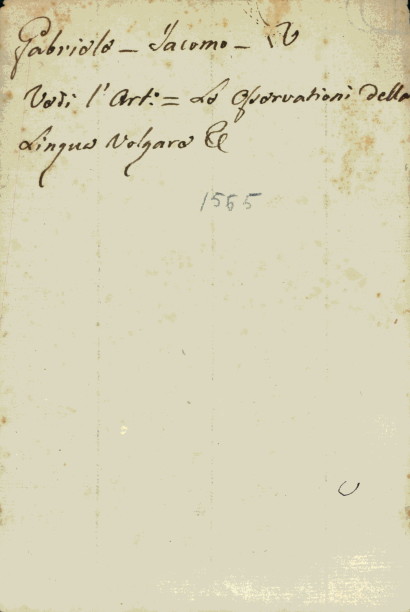 Gabriele - Iacomo - V
Vedi l'Art.º = Le Osservationi della
Lingua Volgare &c
1565